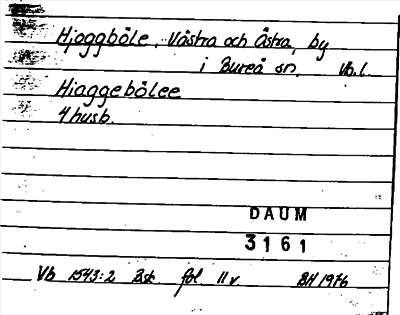 Hjoggböle, Västra och Östra, by
i Bureå sn, Vb.l.
Hiaggebölee
4 husb.
DAUM
3161
Vb 1543:2 Bsk fol 11v BH 1976